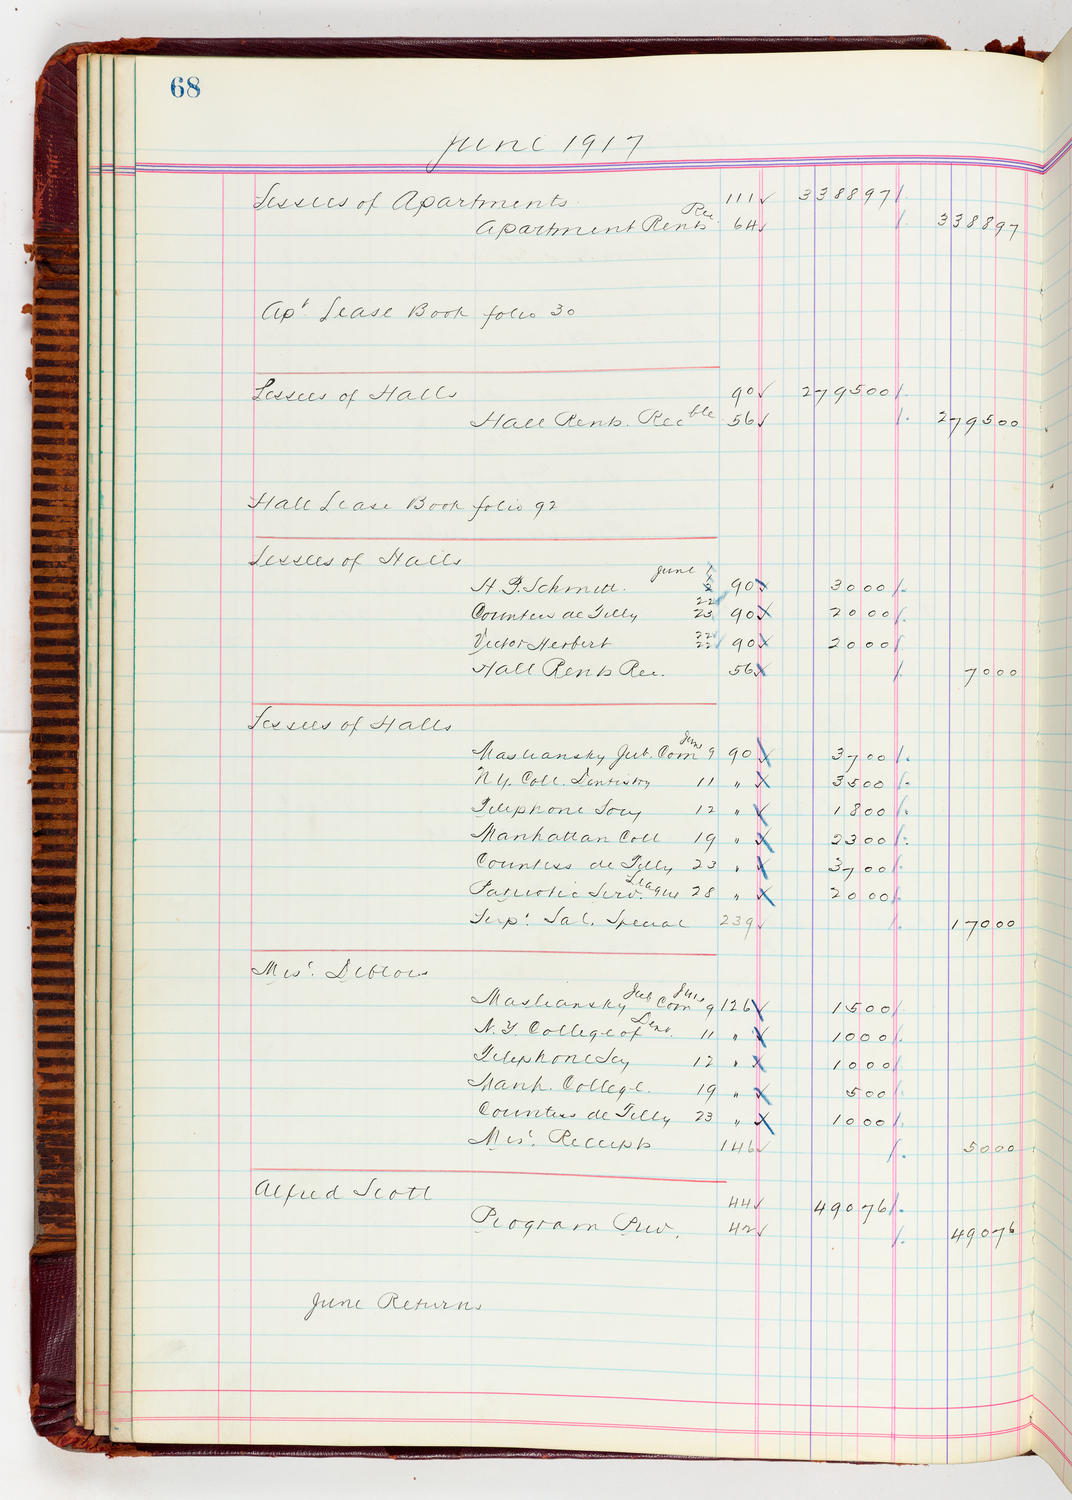 68
June 1917
Lessees of Apartments 111 338897
Apartment Rents Rec. 64 338897
Apt Lease Book folio 30
Lessees of Halls 90 279500
Hall Rents Recble 56 279500
Hall Lease Book folio 92
Lessees of Halls
H. F. Schmitt. June 1 2 90 3000
Countess de Tilly 22 23 90 2000
Victor Herbert 22 22 90 2000
Hall Rents Rec. 56 7000
Lessees of Halls
Masliansky Jub. Com June 9 90 3700
N.Y. Coll. Dentistry 11 " 3500
Telephone Socy 12 " 1800
Manhattan Coll 19 " 2300
Countess de Tilly 23 " 3700
Patriotic Serv. League 28 " 2000
Supt. Sal. Special 239 17000
Misc. Debtors
Masliansky Jub Com June 9 126 1500
N. Y. College of Den. 11 " 1000
Telephone Scy 12 " 1000
Manh. College. 19 " 500
Countess de Tilly 23 " 1000
Misc. Receipts 146 5000
Alfred Scott 44 49076
Program Priv. 42 49076
June Returns